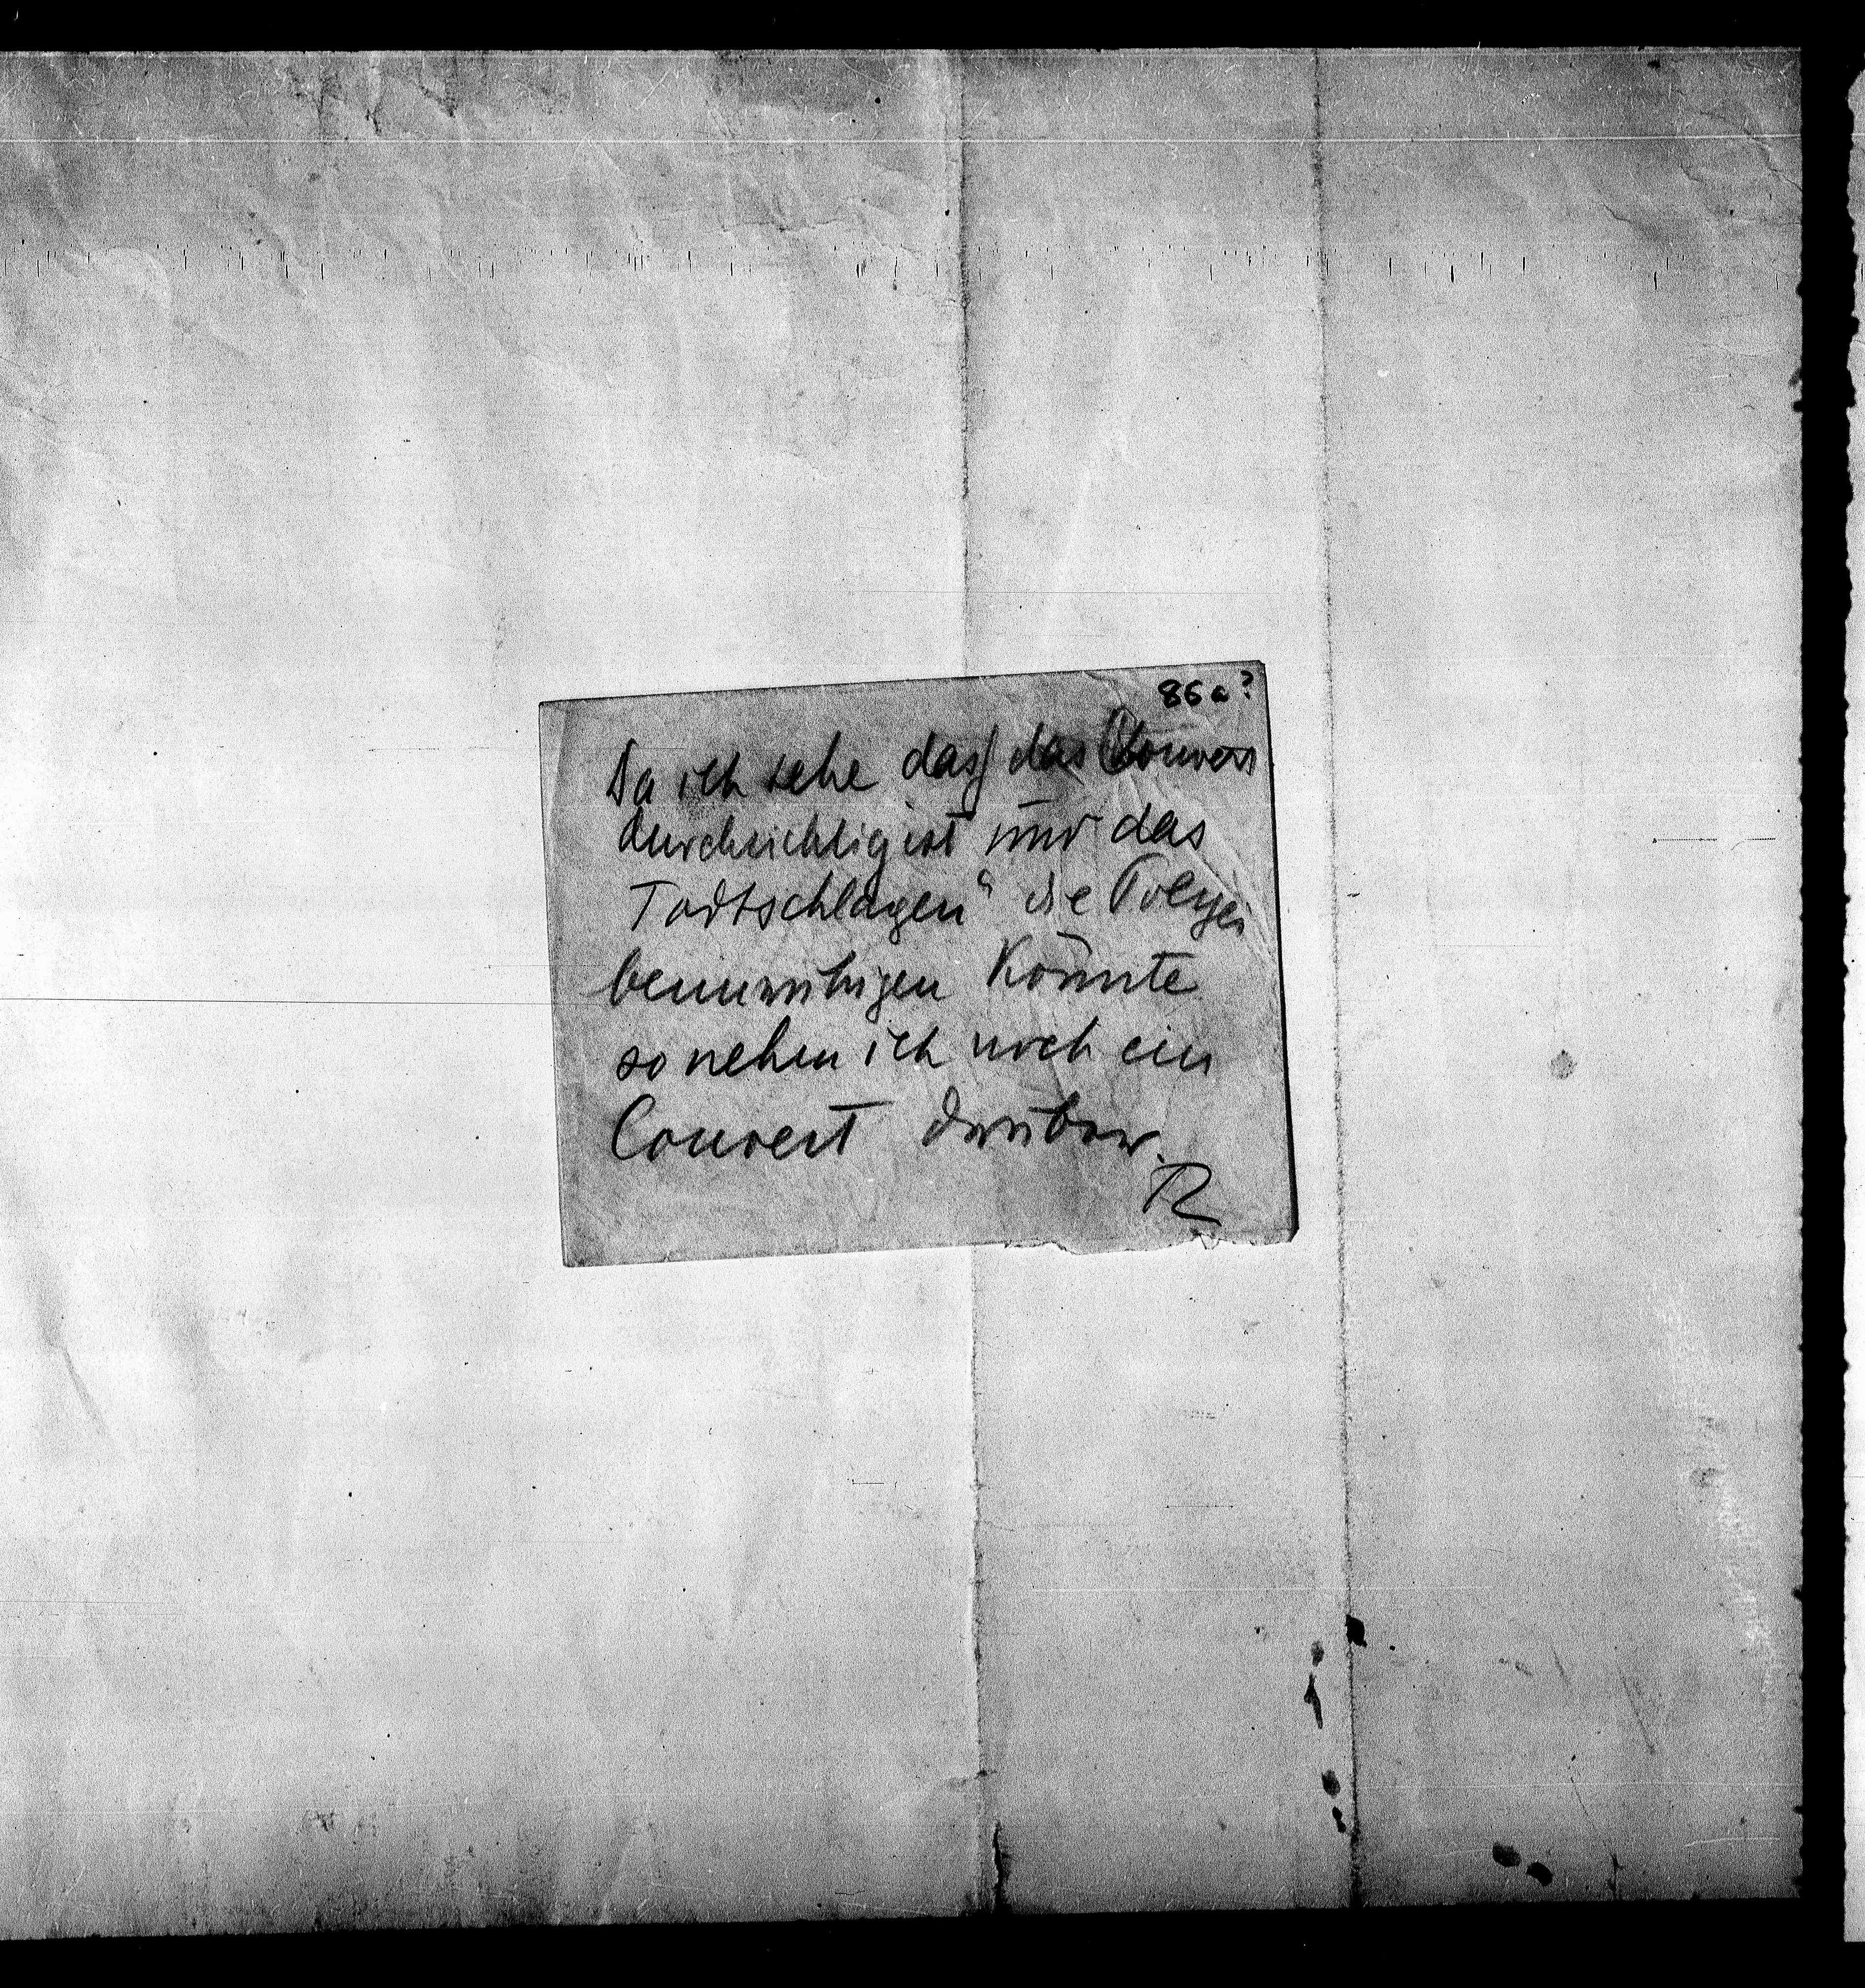 86a?
Da ich sehe daß das Couvert
durchsichtig ist und das
Todtschlagen" die Polizei
beunruhigen könnte
so nehm ich noch ein
Couvert darüber.
R